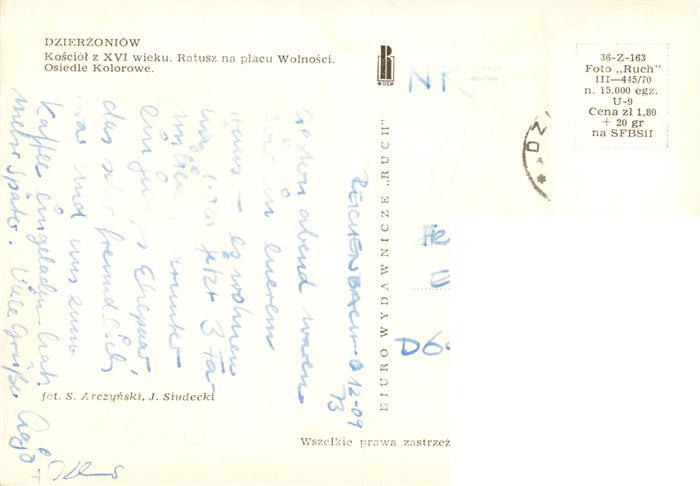 DZIERŻONIÓW
Kościół z XVI wieku. Ratusz na placu Wolności.
Osiedle Kolorowe.
RUCH
BIURO WYDAWNICZE „RUCH"
36-Z-163
Foto „Ruch"
III—445/70
n. 15.000 egz.
U-9
Cena zł 1,80
+ 20 gr
na SFBSiI
REICHENBACH 12-09
73
Gestern abend waren
wir in euerem
Haus – es wohnen
jetzt 3 Fa
milien, darunter
ein junges Ehepaar
das sehr freundlich
war und uns zum
Kaffee eingeladen hat.
mehr später. Viele Grüße
D6
fot. S. Arczyński, J. Siudecki
Wszelkie prawa zastrzeż